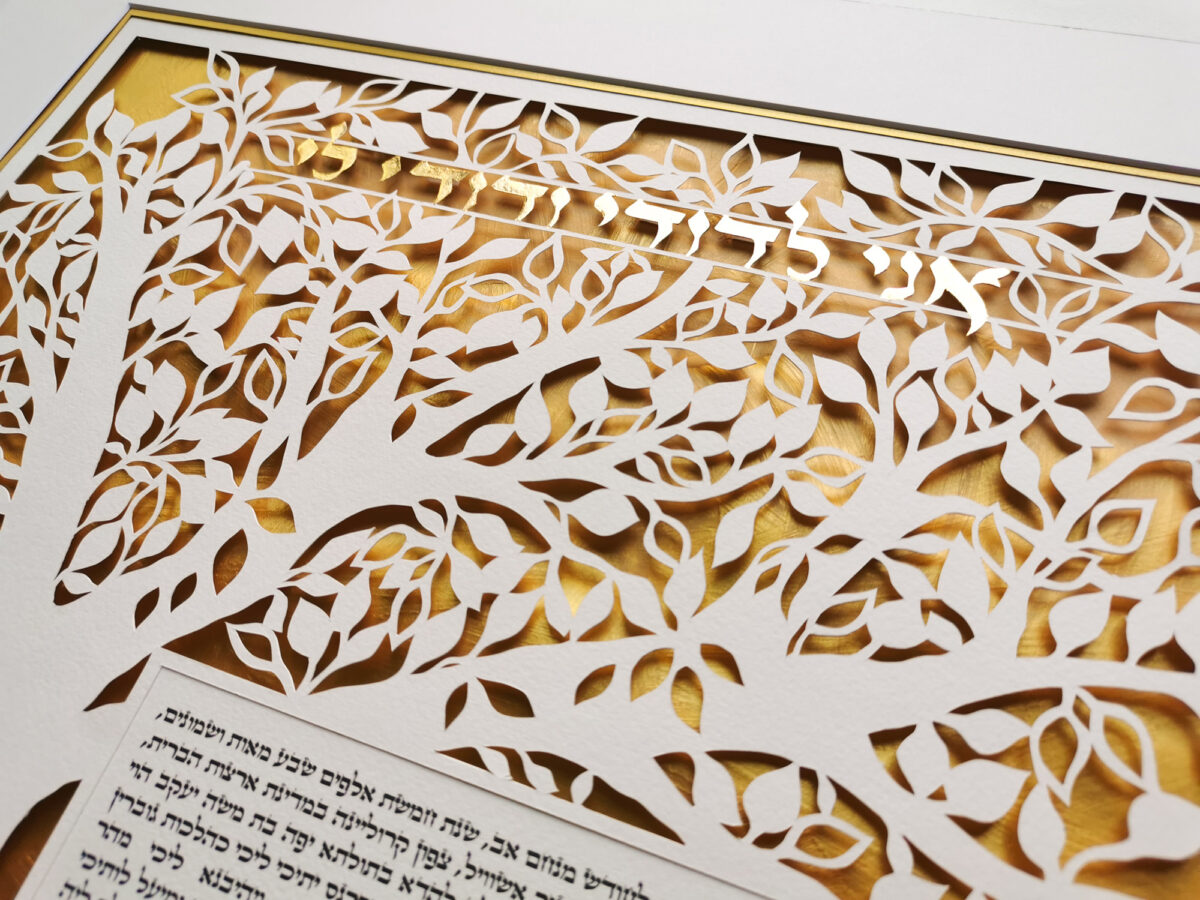 אני לדודי ודודי לי
לחודש מנחם אב, שנת חמשת אלפים שבע מאות ושמונים,
אשוויל, צפון קרוליינה במדינת ארצות הברית,
להדא בתולתא יפה בת משה יעקב הוי
יתיכי ליכי כהלכות גוברין
ויהיבנא ליכי מהר
לותיכי